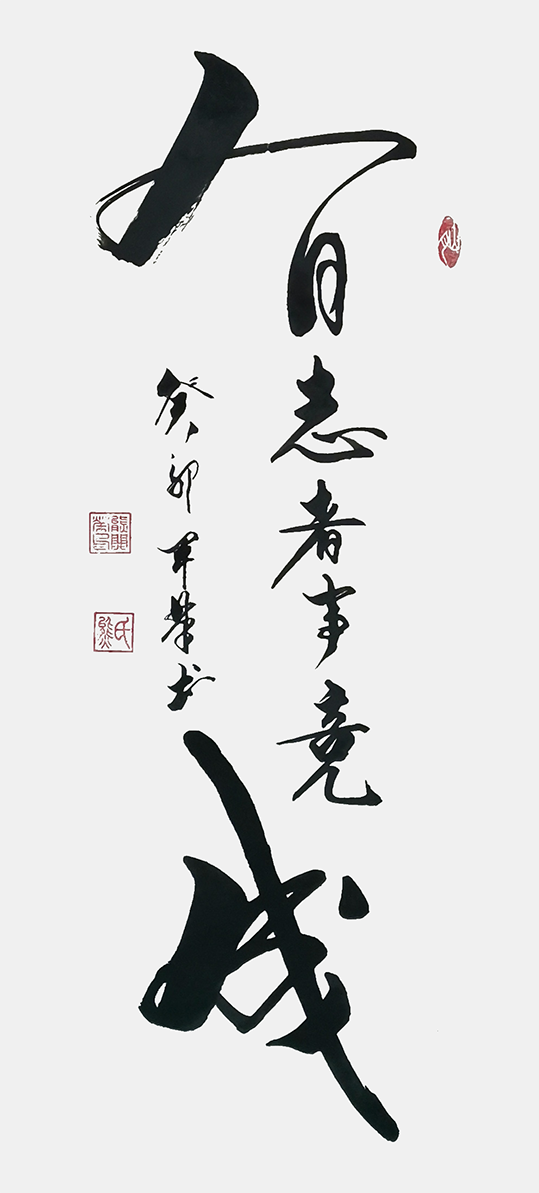 有志者事竟成
癸卯书